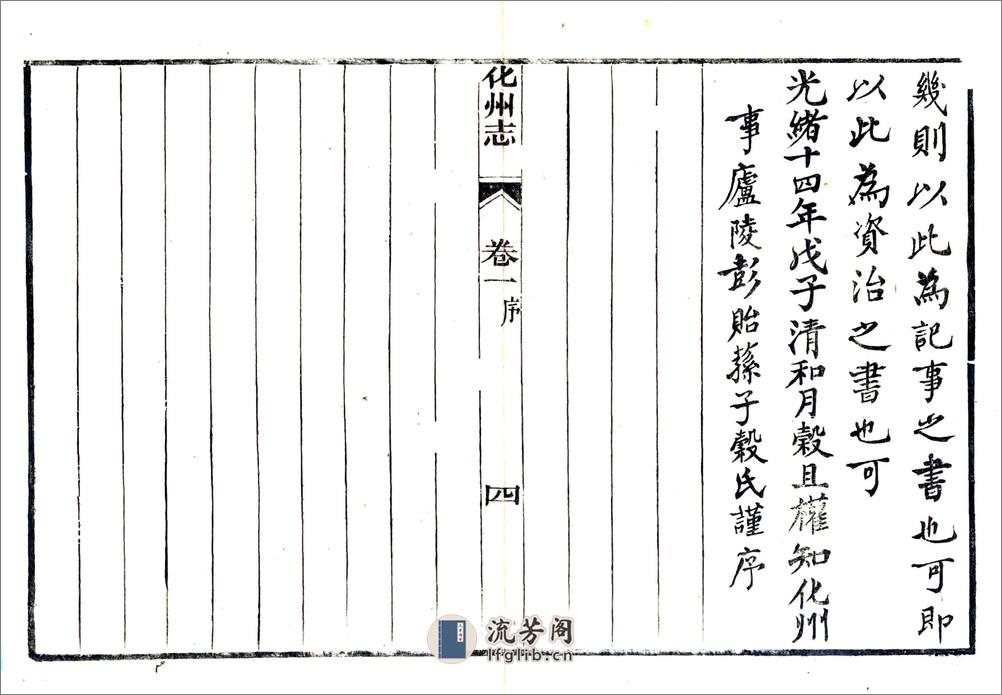 幾則以此為記事之書也可即
以此為資治之書也可
光緒十四年戊子清和月穀旦權知化州
事廬陵彭貽蓀子穀氏謹序
化州志
卷一
序
四
流芳阁
lfglib.cn